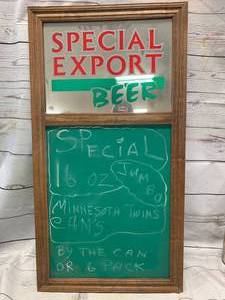 SPECIAL
EXPORT
BEER
SPECIAL
16 OZ JUMBO
MINNESOTA TWINS
CAN'S
BY THE CAN
OR 6 PACK